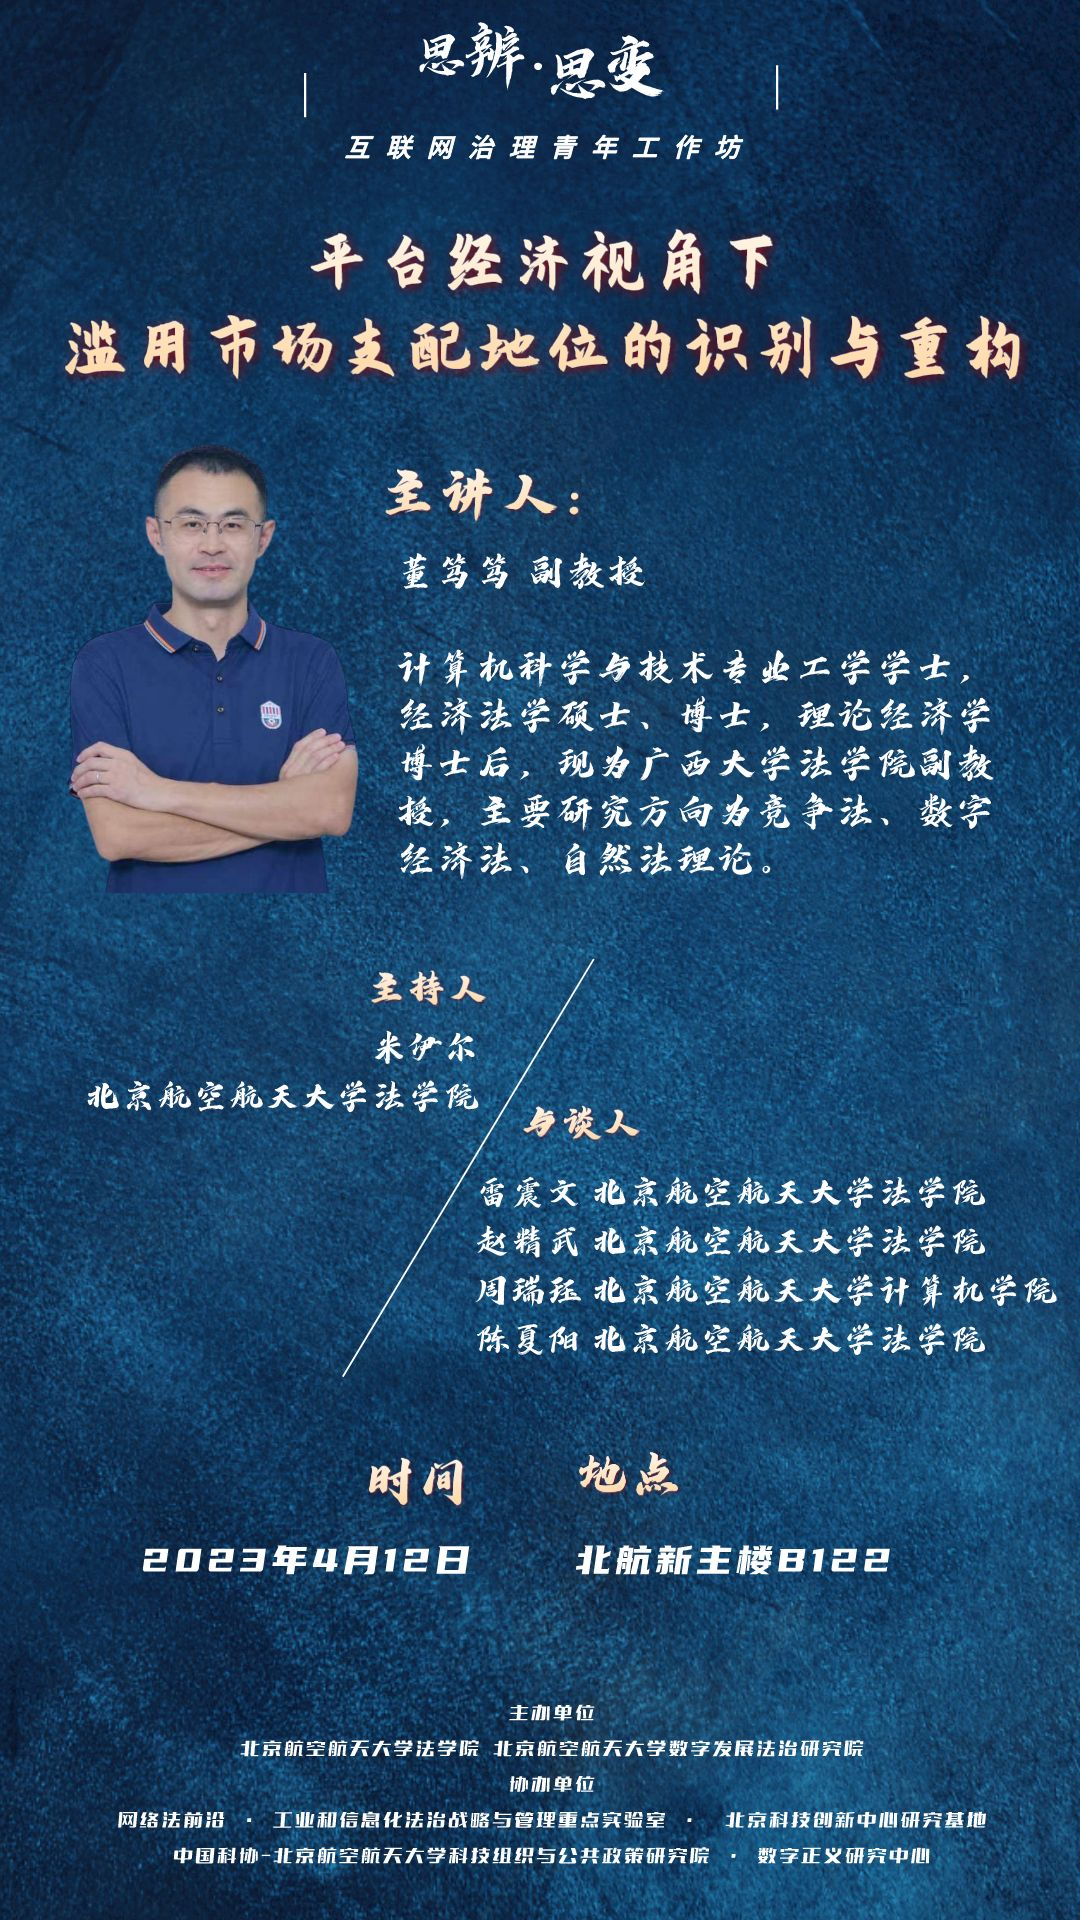 思辨·思变
互联网治理青年工作坊
平台经济视角下
滥用市场支配地位的识别与重构
主讲人：
董笃笃 副教授
计算机科学与技术专业工学学士，
经济法学硕士、博士，理论经济学
博士后，现为广西大学法学院副教
授，主要研究方向为竞争法、数字
经济法、自然法理论。
主持人
米伊尔
北京航空航天大学法学院
与谈人
雷震文 北京航空航天大学法学院
赵精武 北京航空航天大学法学院
周瑞珏 北京航空航天大学计算机学院
陈夏阳 北京航空航天大学法学院
时间
2023年4月12日
地点
北航新主楼B122
主办单位
北京航空航天大学法学院 北京航空航天大学数字发展法治研究院
协办单位
网络法前沿 · 工业和信息化法治战略与管理重点实验室 · 北京科技创新中心研究基地
中国科协-北京航空航天大学科技组织与公共政策研究院 · 数字正义研究中心